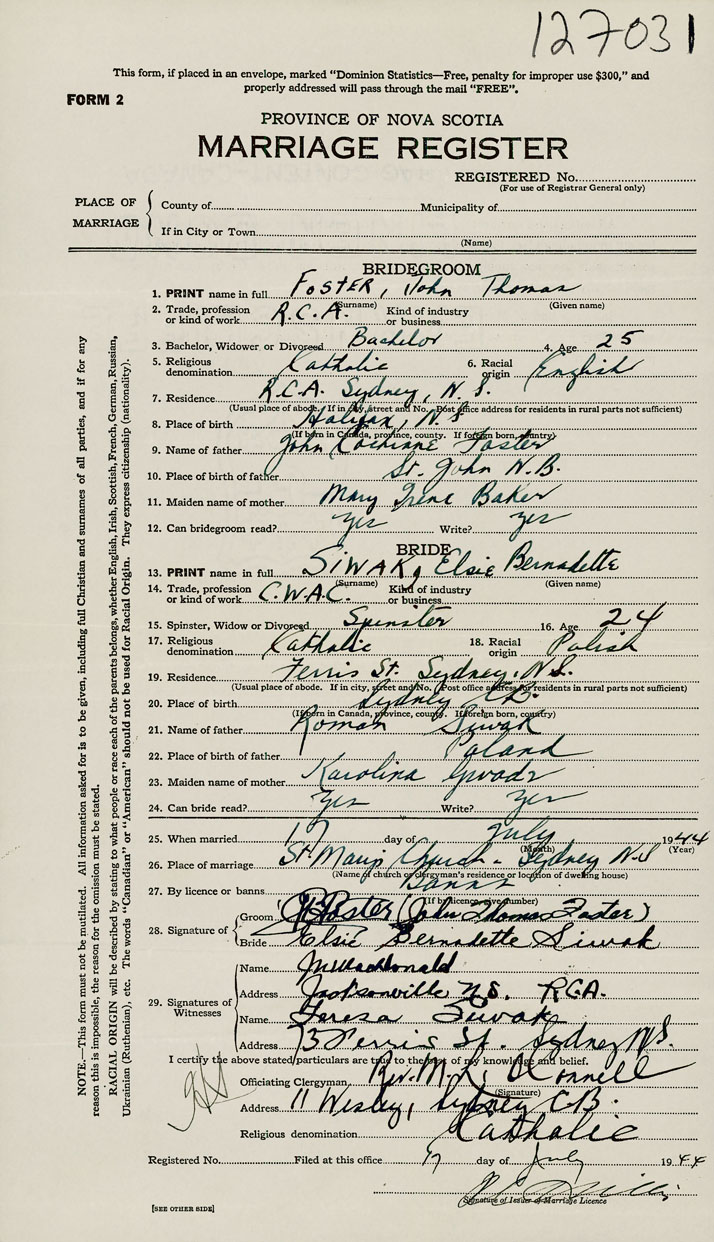 127031
This form, if placed in an envelope, marked "Dominion Statistics—Free, penalty for improper use $300," and
properly addressed will pass through the mail "FREE".
FORM 2
PROVINCE OF NOVA SCOTIA
MARRIAGE REGISTER
REGISTERED No.
(For use of Registrar General only)
PLACE OF MARRIAGE
County of Municipality of
If in City or Town
(Name)
BRIDEGROOM
1. PRINT name in full FOSTER, John Thomas
(Surname) (Given name)
2. Trade, profession or kind of work R.C.A. Kind of industry or business
3. Bachelor, Widower or Divorced Bachelor 4. Age 25
5. Religious denomination Catholic 6. Racial origin English
7. Residence R.C.A. Sydney, N.S.
(Usual place of abode. If in city, street and No. Post office address for residents in rural parts not sufficient)
8. Place of birth Halifax, N.S
(If born in Canada, province, county. If foreign born, country)
9. Name of father John Cochrane Foster
10. Place of birth of father St. John N.B.
11. Maiden name of mother Mary Irene Baker
12. Can bridegroom read? Yes Write? Yes
BRIDE
13. PRINT name in full SIWAK, Elsie Bernadette
(Surname) (Given name)
14. Trade, profession or kind of work C.W.A.C. Kind of industry or business
15. Spinster, Widow or Divorced Spinster 16. Age 24
17. Religious denomination Catholic 18. Racial origin Polish
19. Residence Ferris St. Sydney, N.S.
(Usual place of abode. If in city, street and No. Post office address for residents in rural parts not sufficient)
20. Place of birth Sydney C.B.
(If born in Canada, province, county. If foreign born, country)
21. Name of father Roman Siwak
22. Place of birth of father Poland
23. Maiden name of mother Karolina
24. Can bride read? Yes Write? Yes
25. When married 17 day of July 1944
(Month) (Year)
26. Place of marriage St Marys Church - Sydney N.S
(Name of church or clergyman's residence or location of dwelling house)
27. By licence or banns Banns
(If by licence, give number)
28. Signature of
Groom Foster (John Thomas Foster)
Bride Elsie Bernadette Siwak
29. Signatures of Witnesses
Name MacDonald
Address Jacksonville N.S. RCA.
Name Teresa Siwak
Address Ferris St. Sydney N.S.
I certify the above stated particulars are true to the best of my knowledge and belief.
Officiating Clergyman, Rev. M. O'Connell
(Signature)
Address 11 Wesley, Sydney C.B.
Religious denomination Catholic
Registered No. Filed at this office 17 day of July 1944
Signature of Issuer of Marriage Licence
[SEE OTHER SIDE]
NOTE.—This form must not be mutilated. All information asked for is to be given, including full Christian and surnames of all parties, and if for any
reason this is impossible, the reason for the omission must be stated.
RACIAL ORIGIN will be described by stating to what people or race each of the parents belongs, whether English, Irish, Scottish, French, German, Russian,
Ukrainian (Ruthenian), etc. The words "Canadian" or "American" should not be used for Racial Origin. They express citizenship (nationality).